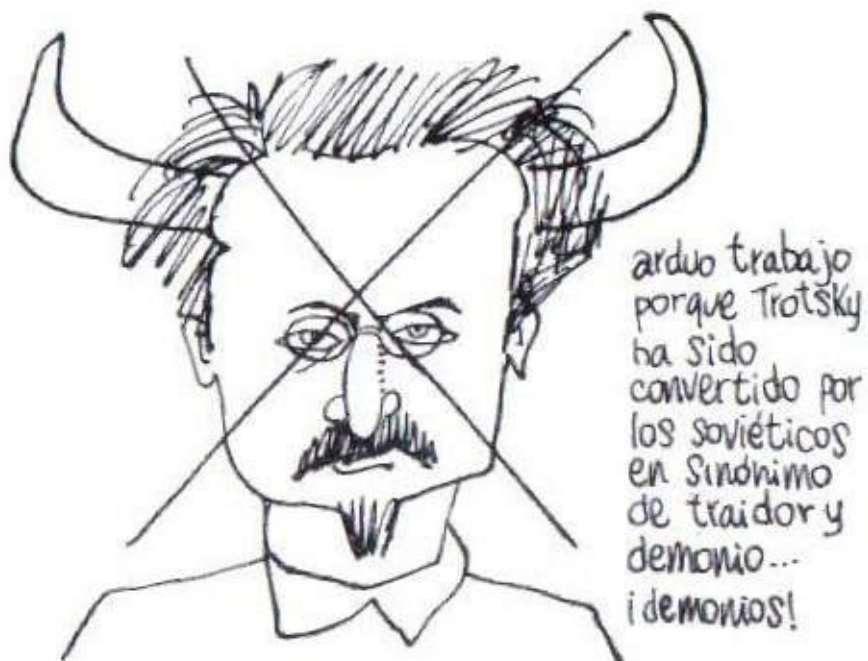 arduo trabajo
porque Trotsky
ha sido
convertido por
los soviéticos
en sinónimo
de traidor y
demonio...
¡demonios!